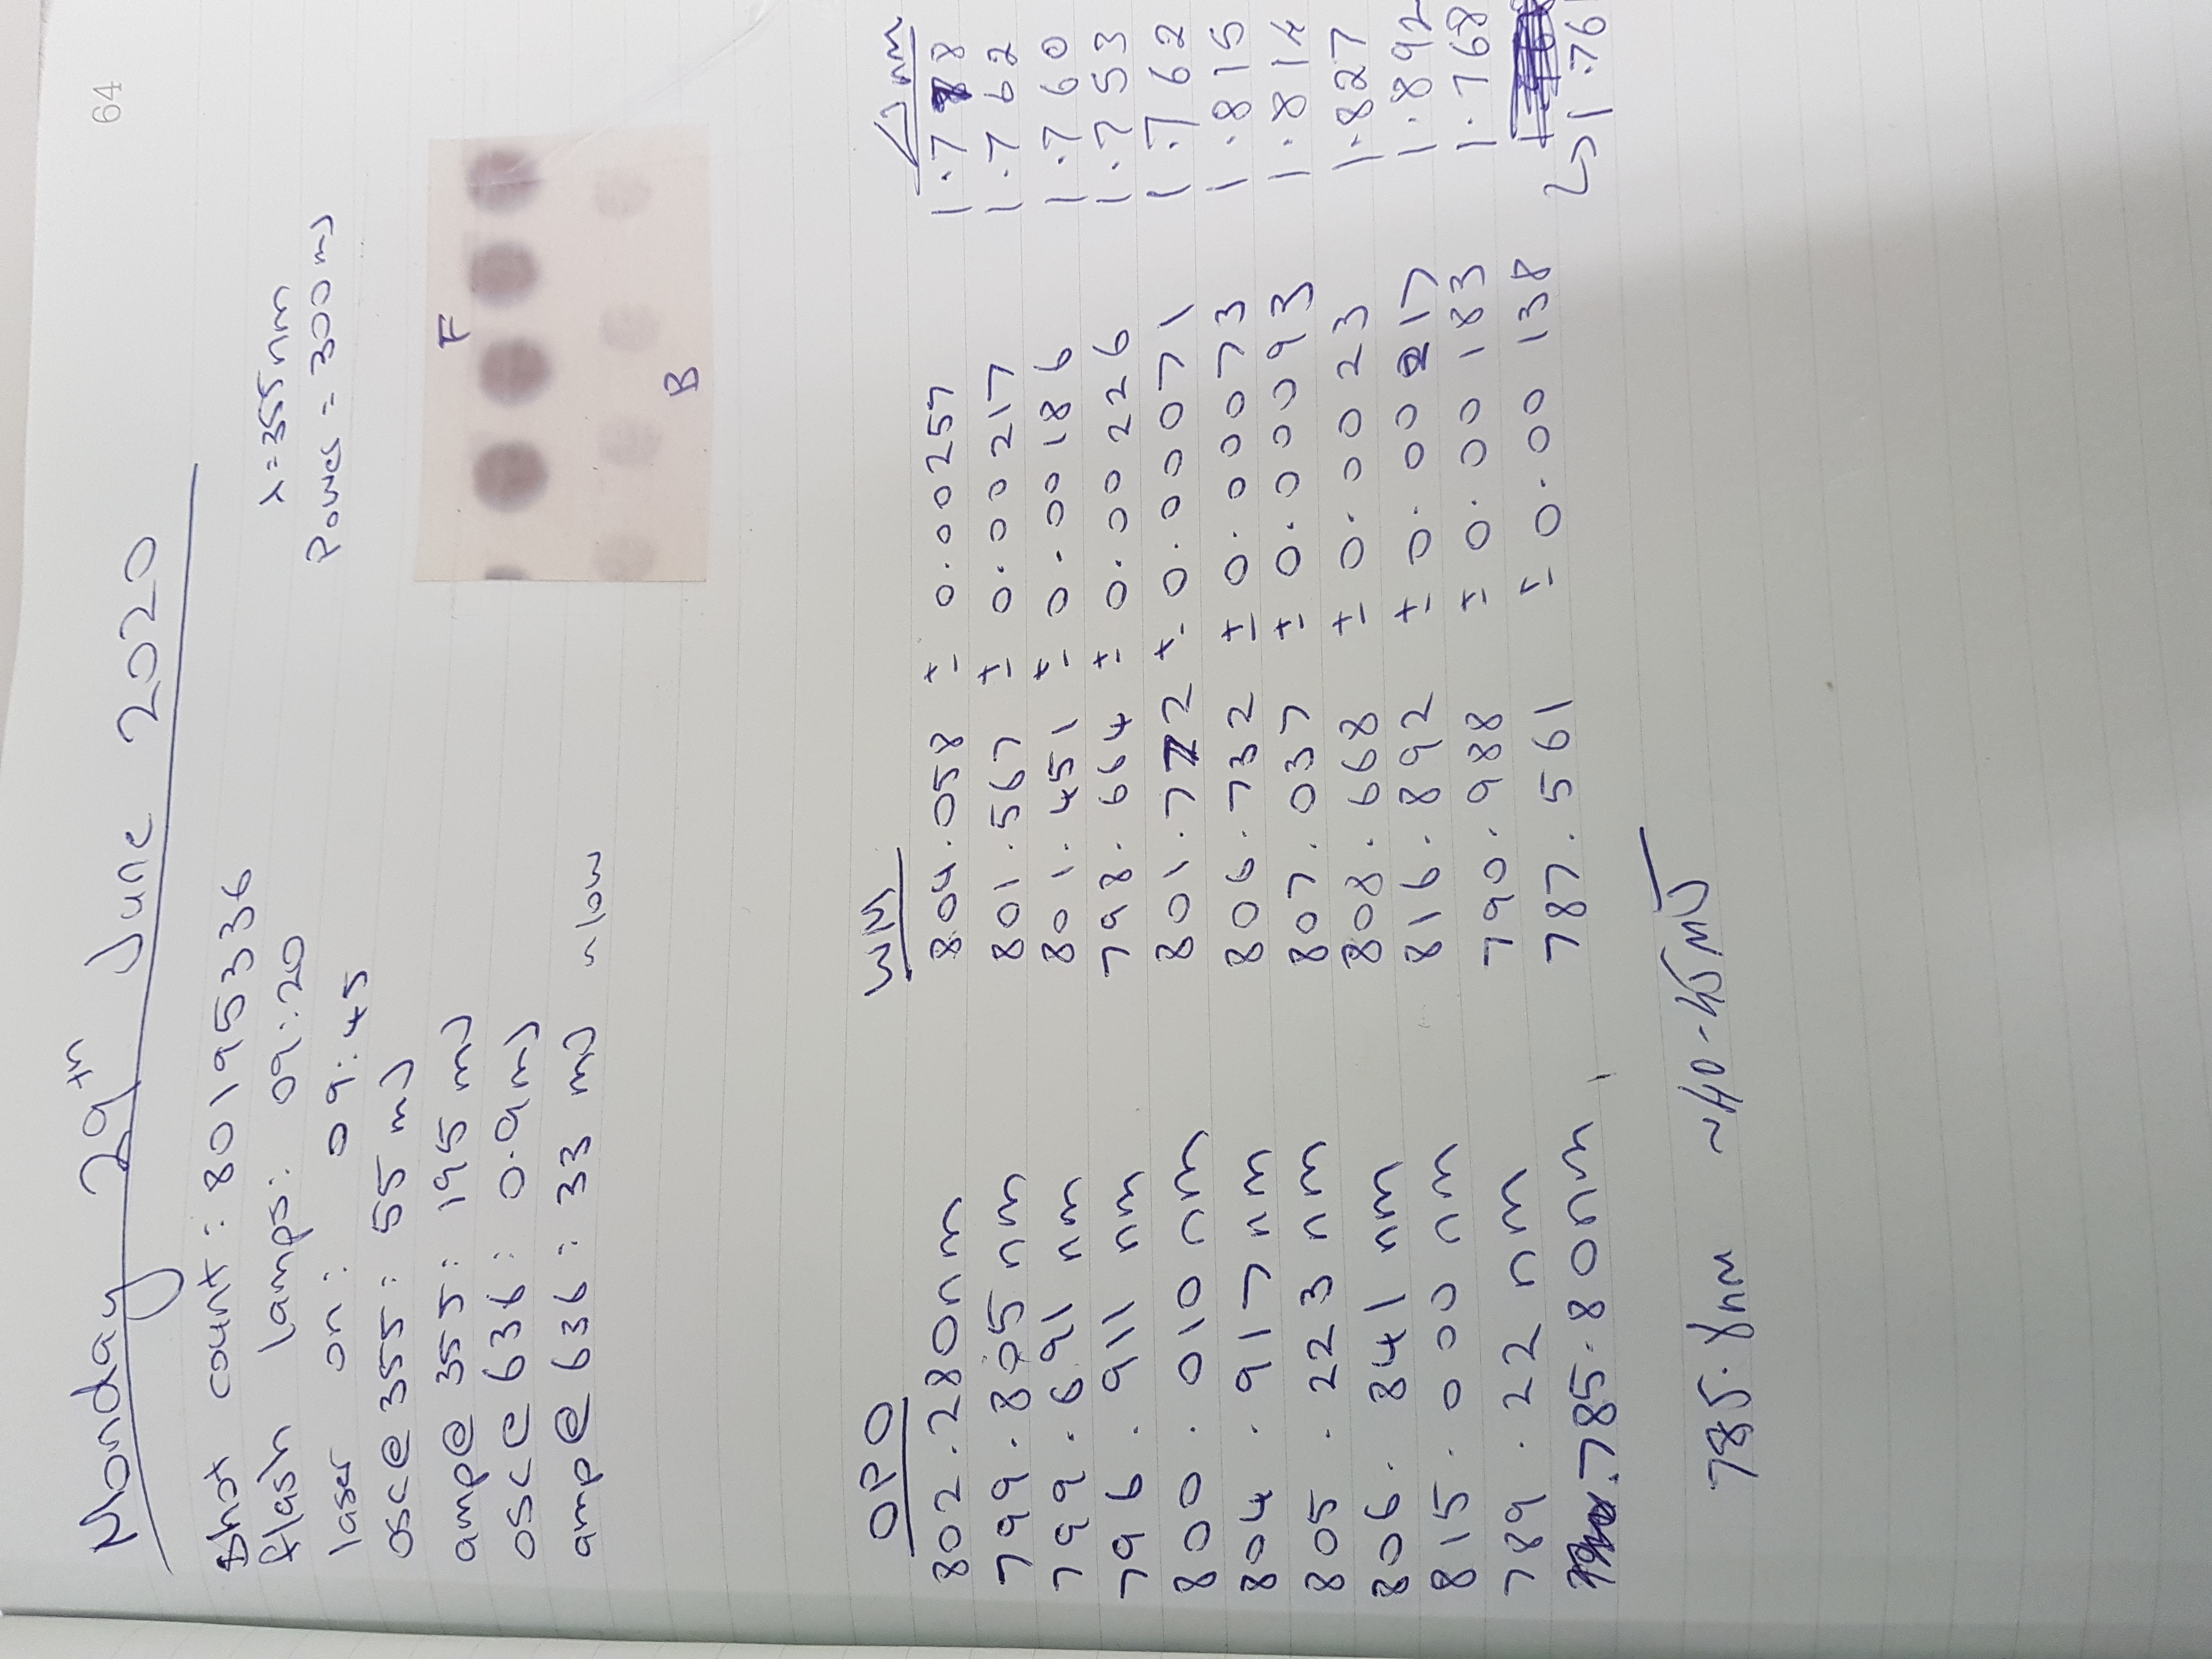 64
Monday 29th June 2020
Shot count: 80195336
flash lamps: 09:20
laser on: 09:45
osc@ 355: 55 mJ
amp@ 355: 195 mJ
osc@ 636: 0.9mJ
amp@ 636: 33 mJ ~low
λ=355nm
Power = 300mJ
F
B
OPO WM Δnm
802.280nm 804.058 ± 0.00257 1.778
799.805nm 801.567 ± 0.00217 1.762
799.691 nm 801.451 ± 0.00186 1.760
796.911 nm 798.664 ± 0.00226 1.753
800.010nm 801.772 ± 0.00071 1.762
804.917nm 806.732 ± 0.00073 1.815
805.223 nm 807.037 ± 0.00093 1.814
806.841 nm 808.668 ± 0.0023 1.827
815.000 nm 816.892 ± 0.00217 1.892
789.22 nm 790.988 ± 0.00183 1.768
785.80nm 787.561 ± 0.00138
↳ 1.761
785.8nm ~40-45mJ